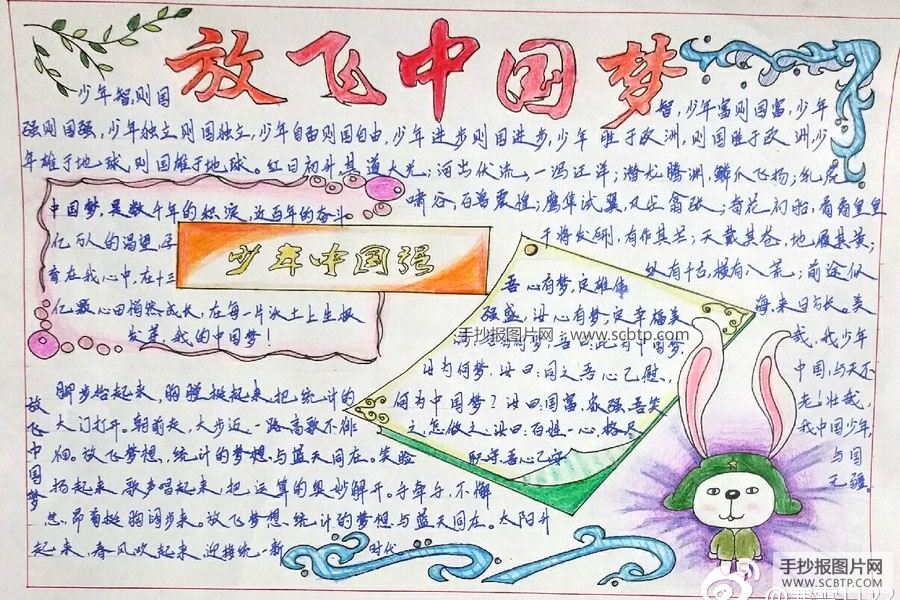 放飞中国梦
少年智则国
智,少年富则国富,少年
强则国强,少年独立则国独立,少年自由则国自由,少年进步则国进步,少年胜于欧洲,则国胜于欧洲,少
年雄于地球,则国雄于地球。红日初升,其道大光;河出伏流,一泻汪洋;潜龙腾渊,鳞爪飞扬;乳虎
啸谷,百兽震惶;鹰隼试翼,风尘翕张;奇花初胎,矞矞皇皇
干将发硎,有作其芒;天戴其苍,地履其黄;
纵有千古,横有八荒;前途似
海,来日方长。美
哉,我少年
中国,与天不
老!壮哉,
我中国少年,
与国
无疆。
中国梦,是数千年的积淀,近百年的奋斗
亿万人的渴望,孕
育在我心中,在十三
亿颗心田悄然成长,在每一片沃土上生根
发芽,我的中国梦!
少年中国强
吾心有梦,定雄伟
强盛,汝心有梦,定幸福美
汝为何梦,汝曰:问之吾心已慰,
何为中国梦?汝曰:国富,家强,吾笑
之,怎做之,汝曰:百姓一心,格尽
放飞中国梦
脚步抬起来,胸膛挺起来,把统计的
大门打开,朝前走,大步迈,一路高歌不徘
徊。放飞梦想,统计的梦想与蓝天同在。笑脸
扬起来,歌声唱起来,把运算的奥妙解开。
昂首挺胸阔步来。放飞梦想,统计的梦想与蓝天同在。太阳升
起来,春风吹起来,迎接统一新时代。
手抄报图片网 www.scbtp.com
手抄报图片网
WWW.SCBTP.COM